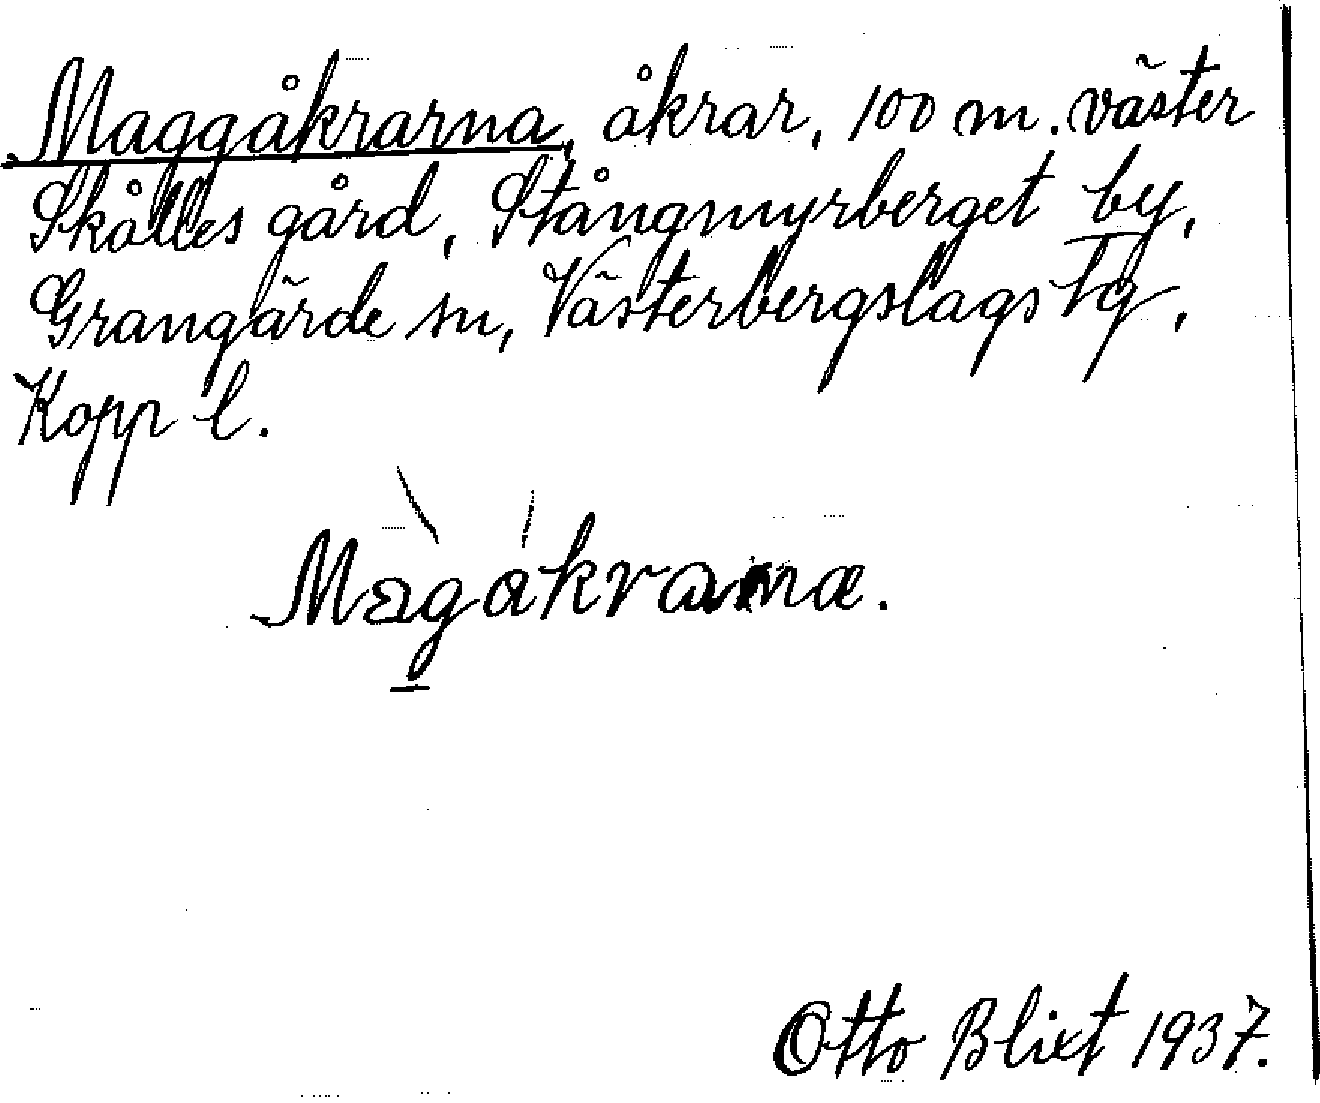 Maggåkrarna, åkrar, 100 m. väster
Skålles gård, Stångmyrberget by,
Grangärde sn, Västerbergslags tg,
Kopp l.
Magåkrana.
Otto Blixt 1937.